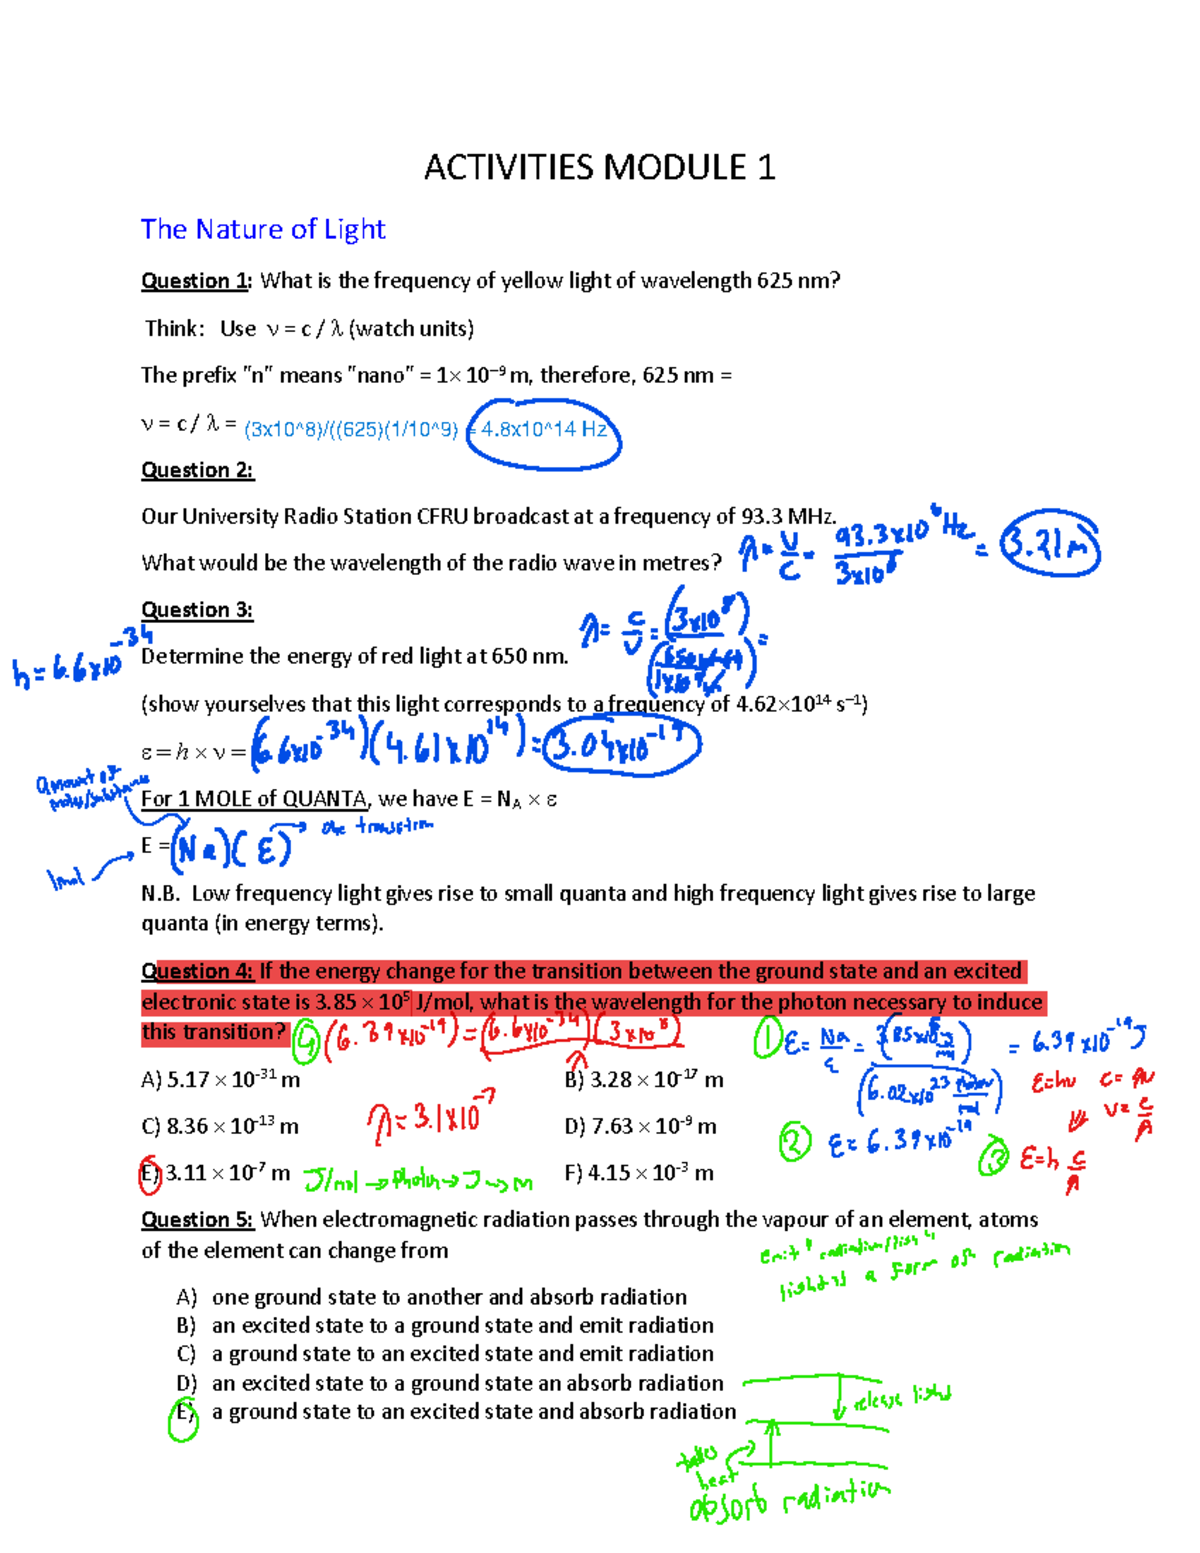 ACTIVITIES MODULE 1
The Nature of Light
Question 1: What is the frequency of yellow light of wavelength 625 nm?
Think: Use ν = c / λ (watch units)
The prefix "n" means "nano" = 1× 10⁻⁹ m, therefore, 625 nm =
ν = c / λ = (3x10^8)/((625)(1/10^9) = 4.8x10^14 Hz
Question 2:
Our University Radio Station CFRU broadcast at a frequency of 93.3 MHz.
What would be the wavelength of the radio wave in metres? λ = V/C = 93.3x10⁶ Hz / 3x10⁸ = 3.21 m
Question 3:
λ = c/v = (3x10⁸) =
h = 6.6x10⁻³⁴
Determine the energy of red light at 650 nm.
(show yourselves that this light corresponds to a frequency of 4.62×10¹⁴ s⁻¹)
ε = h × ν = (6.6x10⁻³⁴)(4.61x10¹⁴) = 3.04x10⁻¹⁹
amount of
For 1 MOLE of QUANTA, we have E = N_A × ε
E = (Na)(E) → one transition
1mol
N.B. Low frequency light gives rise to small quanta and high frequency light gives rise to large
quanta (in energy terms).
Question 4: If the energy change for the transition between the ground state and an excited
electronic state is 3.85 × 10⁵ J/mol, what is the wavelength for the photon necessary to induce
this transition? ④ (6.39x10⁻¹⁹) = (6.6x10⁻³⁴)(3x10⁸)
① E = Na/ε = = 6.39x10⁻¹⁹ J
A) 5.17 × 10⁻³¹ m B) 3.28 × 10⁻¹⁷ m
(6.02x10²³ photon/mol)
E=hv c=λv
v=c/λ
λ=3.1x10⁻⁷
C) 8.36 × 10⁻¹³ m D) 7.63 × 10⁻⁹ m
② E = 6.39x10⁻¹⁹ ③ E=h c/λ
E) 3.11 × 10⁻⁷ m J/mol → photon → J → m F) 4.15 × 10⁻³ m
Question 5: When electromagnetic radiation passes through the vapour of an element, atoms
of the element can change from
emit "radiation/light"
light is a form of radiation
A) one ground state to another and absorb radiation
B) an excited state to a ground state and emit radiation
C) a ground state to an excited state and emit radiation
D) an excited state to a ground state an absorb radiation
release light
E) a ground state to an excited state and absorb radiation
takes
heat
absorb radiation